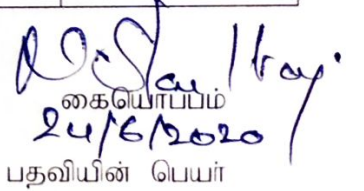 கையொப்பம்
24/6/2020
பதவியின் பெயர்